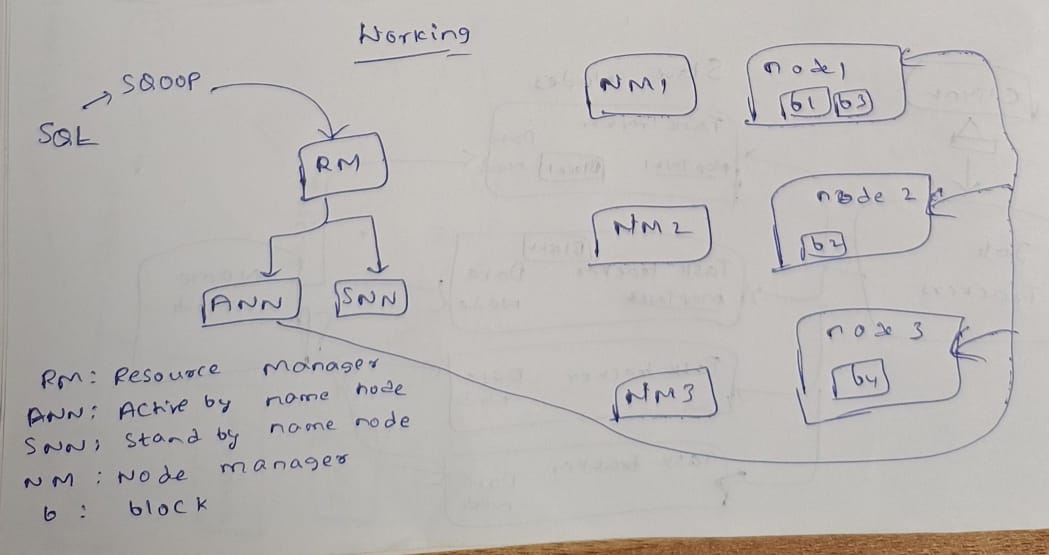 Working
SQOOP
SQL
RM
ANN
SNN
NM1
node1
b1 b3
NM2
node 2
b2
NM3
node 3
b4
RM: Resource manager
ANN: Active by name node
SNN: Stand by name node
NM: Node manager
b: block